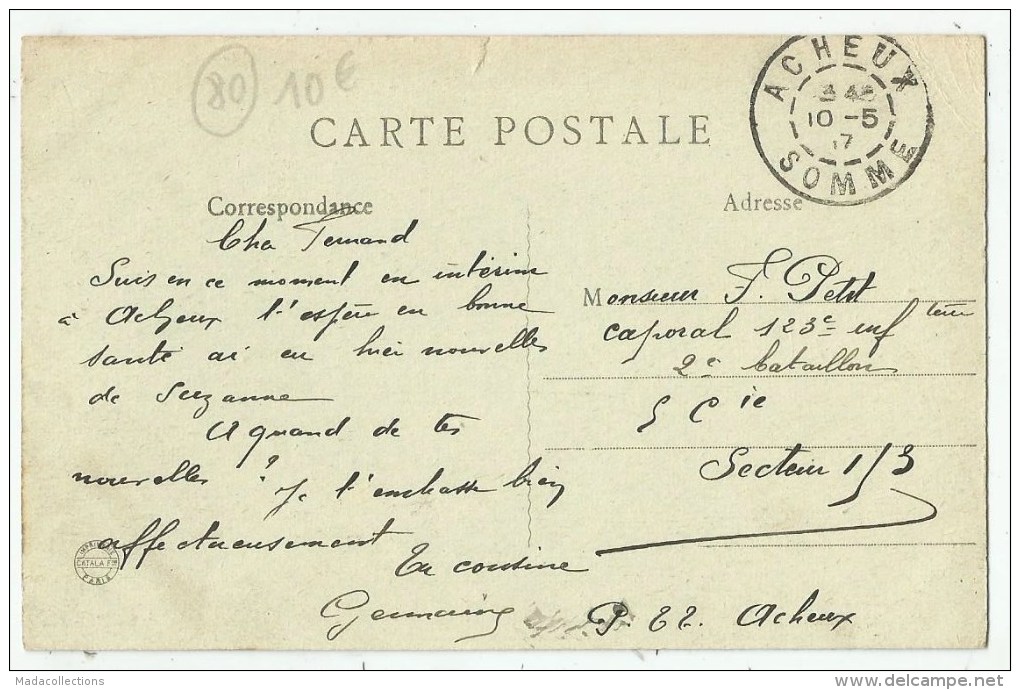 80 10€
ACHEUX
10-5
17
SOMME
CARTE POSTALE
Correspondance
Adresse
Cher Fernand
Suis en ce moment en intérim
à Acheux t'espère en bonne
santé ai eu hier nouvelles
de Suzanne
A quand de tes
nouvelles ? Je t'embrasse bien
affectueusement
Ta cousine
Germaine
P. T.T. Acheux
Monsieur F. Petit
caporal 123e infterie
2e bataillon
5 Cie
Secteur 173
IMPRIMERIE
CATALA Fres
PARIS
Madacollections
www.delcampe.net